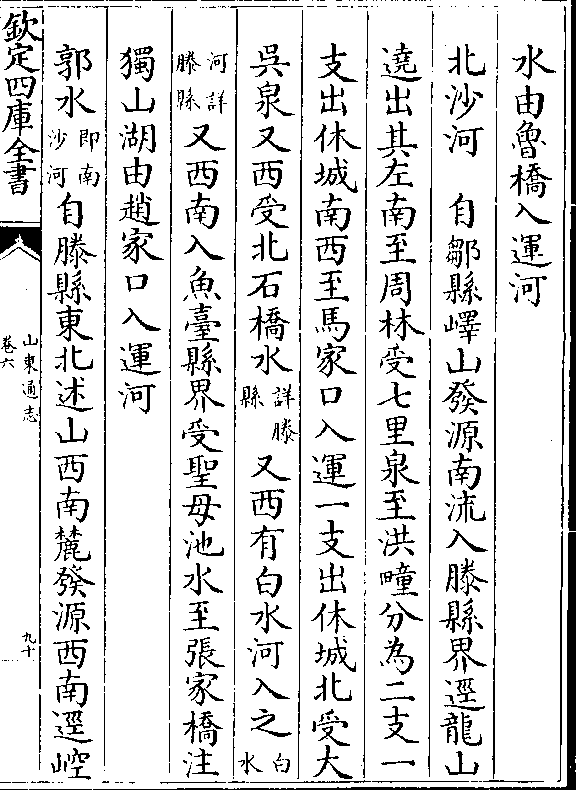 水由魯橋入運河
北沙河　自鄒縣嶧山發源南流入滕縣界逕龍山
遶出其左南至周林受七里泉至洪疃分為二支一
支出休城南西至馬家口入運一支出休城北受大
吳泉又西受北石橋水詳滕縣又西有白水河入之白水
河詳滕縣又西南入魚臺縣界受聖母池水至張家橋注
獨山湖由趙家口入運河
郭水即南沙河自滕縣東北述山西南麓發源西南逕崆
欽定四庫全書
山東通志
卷六
九十